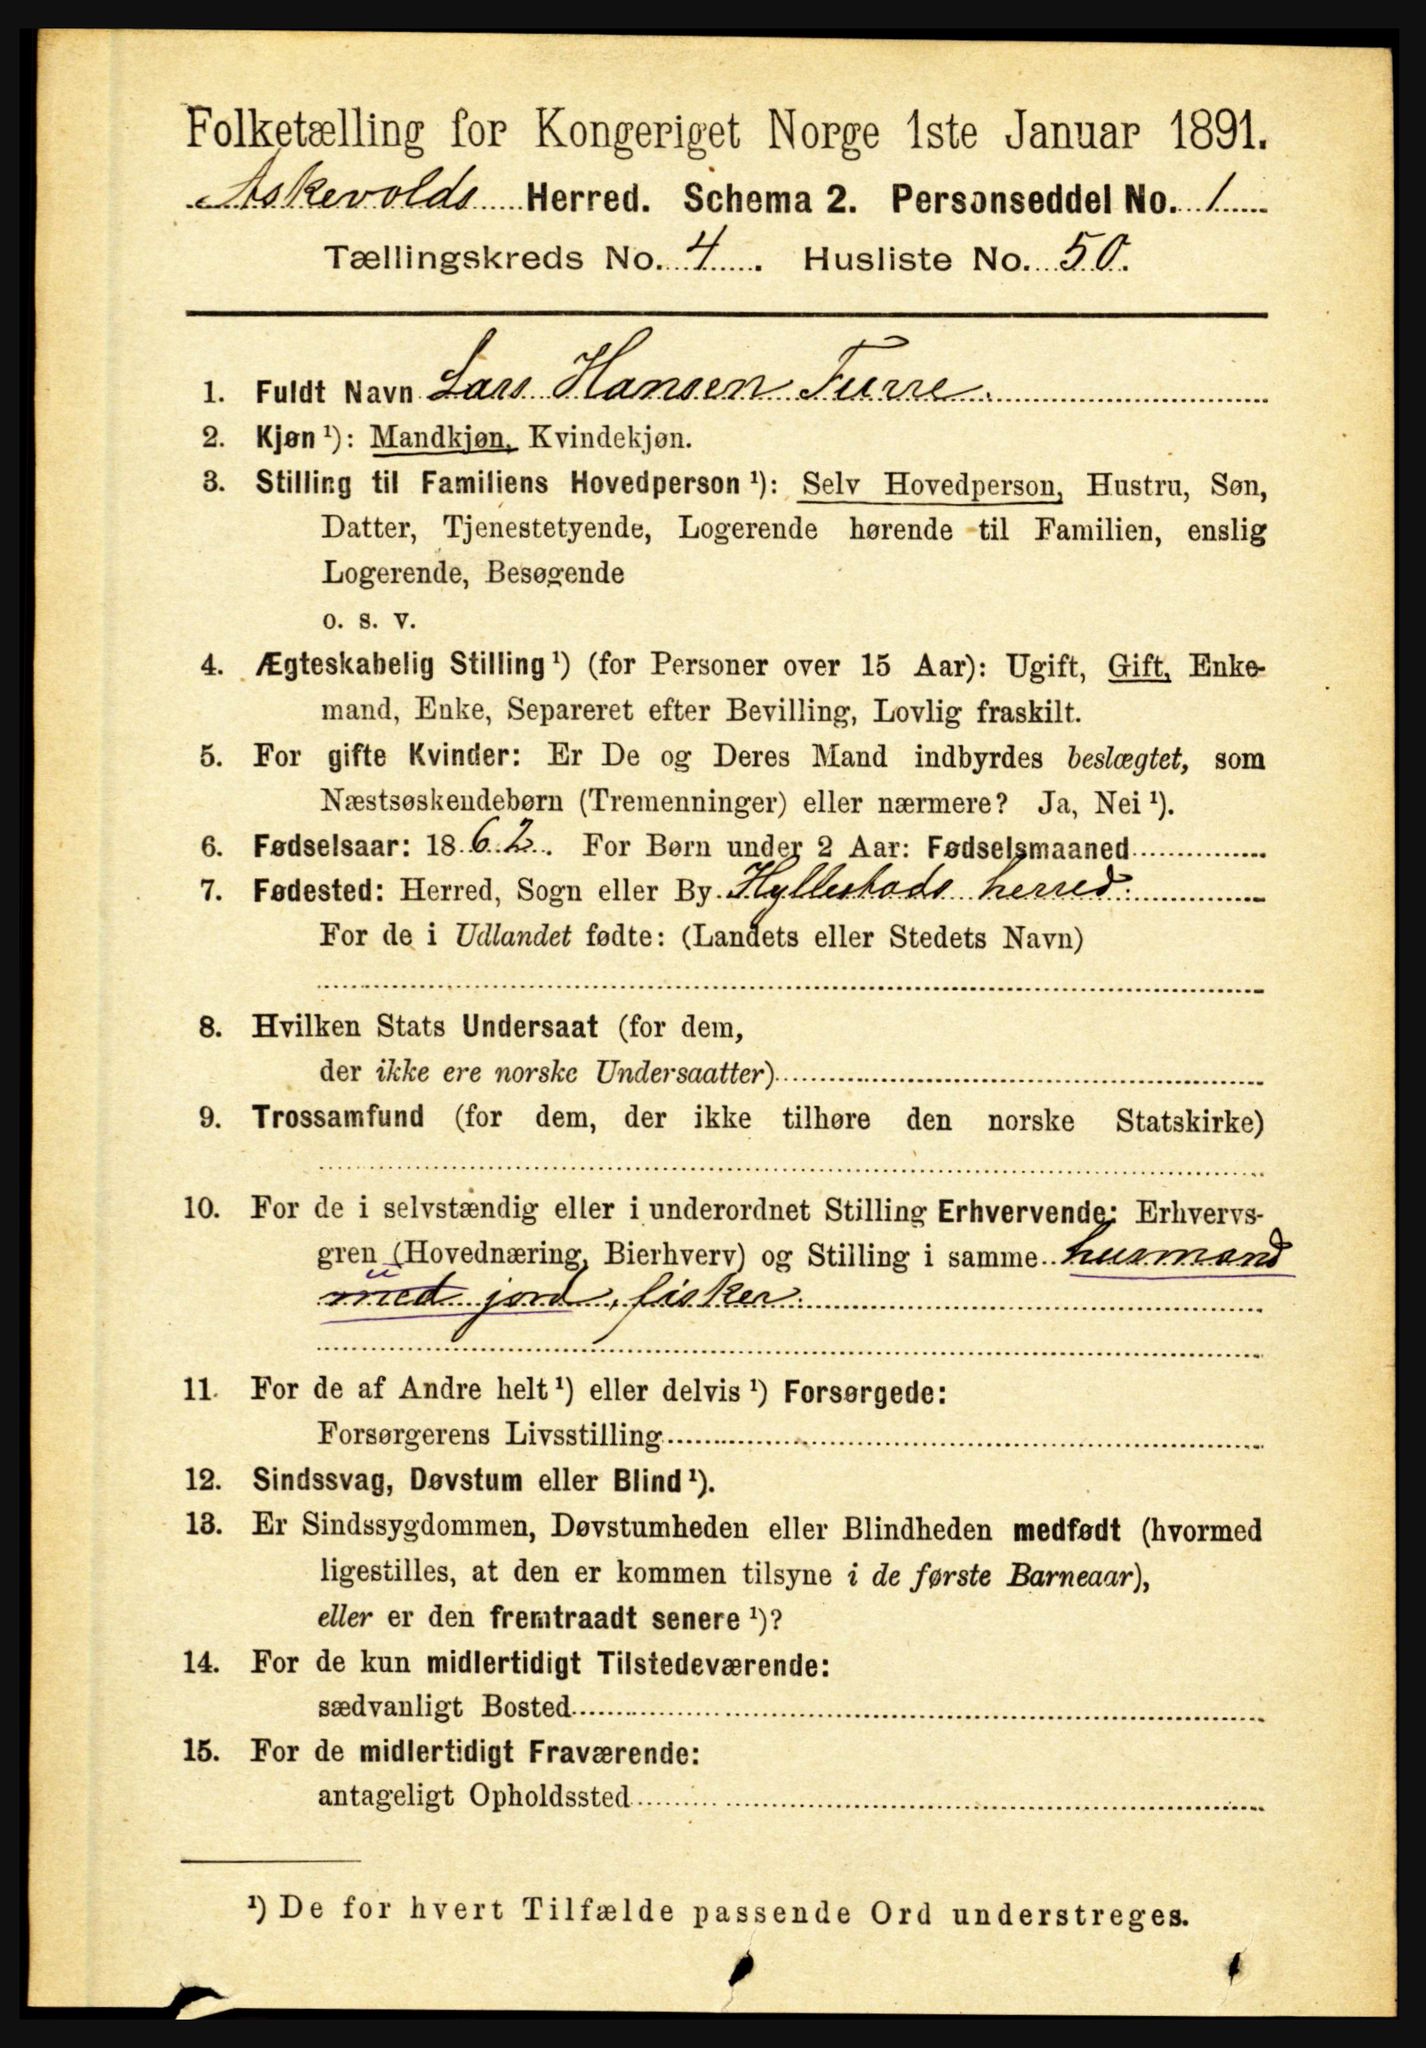 Folketælling for Kongeriget Norge 1ste Januar 1891.
Askevolds Herred. Schema 2. Personseddel No. 1
Tællingskreds No. 4. Husliste No. 50.
1. Fuldt Navn Lars Hansen Furre.
2. Kjøn ¹): Mandkjøn, Kvindekjøn.
3. Stilling til Familiens Hovedperson ¹): Selv Hovedperson, Hustru, Søn,
Datter, Tjenestetyende, Logerende hørende til Familien, enslig
Logerende, Besøgende
o. s. v.
4. Ægteskabelig Stilling ¹) (for Personer over 15 Aar): Ugift, Gift, Enke-
mand, Enke, Separeret efter Bevilling, Lovlig fraskilt.
5. For gifte Kvinder: Er De og Deres Mand indbyrdes beslægtet, som
Næstsøskendebørn (Tremenninger) eller nærmere? Ja, Nei ¹).
6. Fødselsaar: 1862. For Børn under 2 Aar: Fødselsmaaned
7. Fødested: Herred, Sogn eller By Hyllestads herred.
For de i Udlandet fødte: (Landets eller Stedets Navn)
8. Hvilken Stats Undersaat (for dem,
der ikke ere norske Undersaatter)
9. Trossamfund (for dem, der ikke tilhøre den norske Statskirke)
10. For de i selvstændig eller i underordnet Stilling Erhvervende: Erhvervs-
gren (Hovednæring, Bierhverv) og Stilling i samme husmand
med jord, fisker.
11. For de af Andre helt ¹) eller delvis ¹) Forsørgede:
Forsørgerens Livsstilling
12. Sindssvag, Døvstum eller Blind ¹).
13. Er Sindssygdommen, Døvstumheden eller Blindheden medfødt (hvormed
ligestilles, at den er kommen tilsyne i de første Barneaar),
eller er den fremtraadt senere ¹)?
14. For de kun midlertidigt Tilstedeværende:
sædvanligt Bosted
15. For de midlertidigt Fraværende:
antageligt Opholdssted
¹) De for hvert Tilfælde passende Ord understreges.